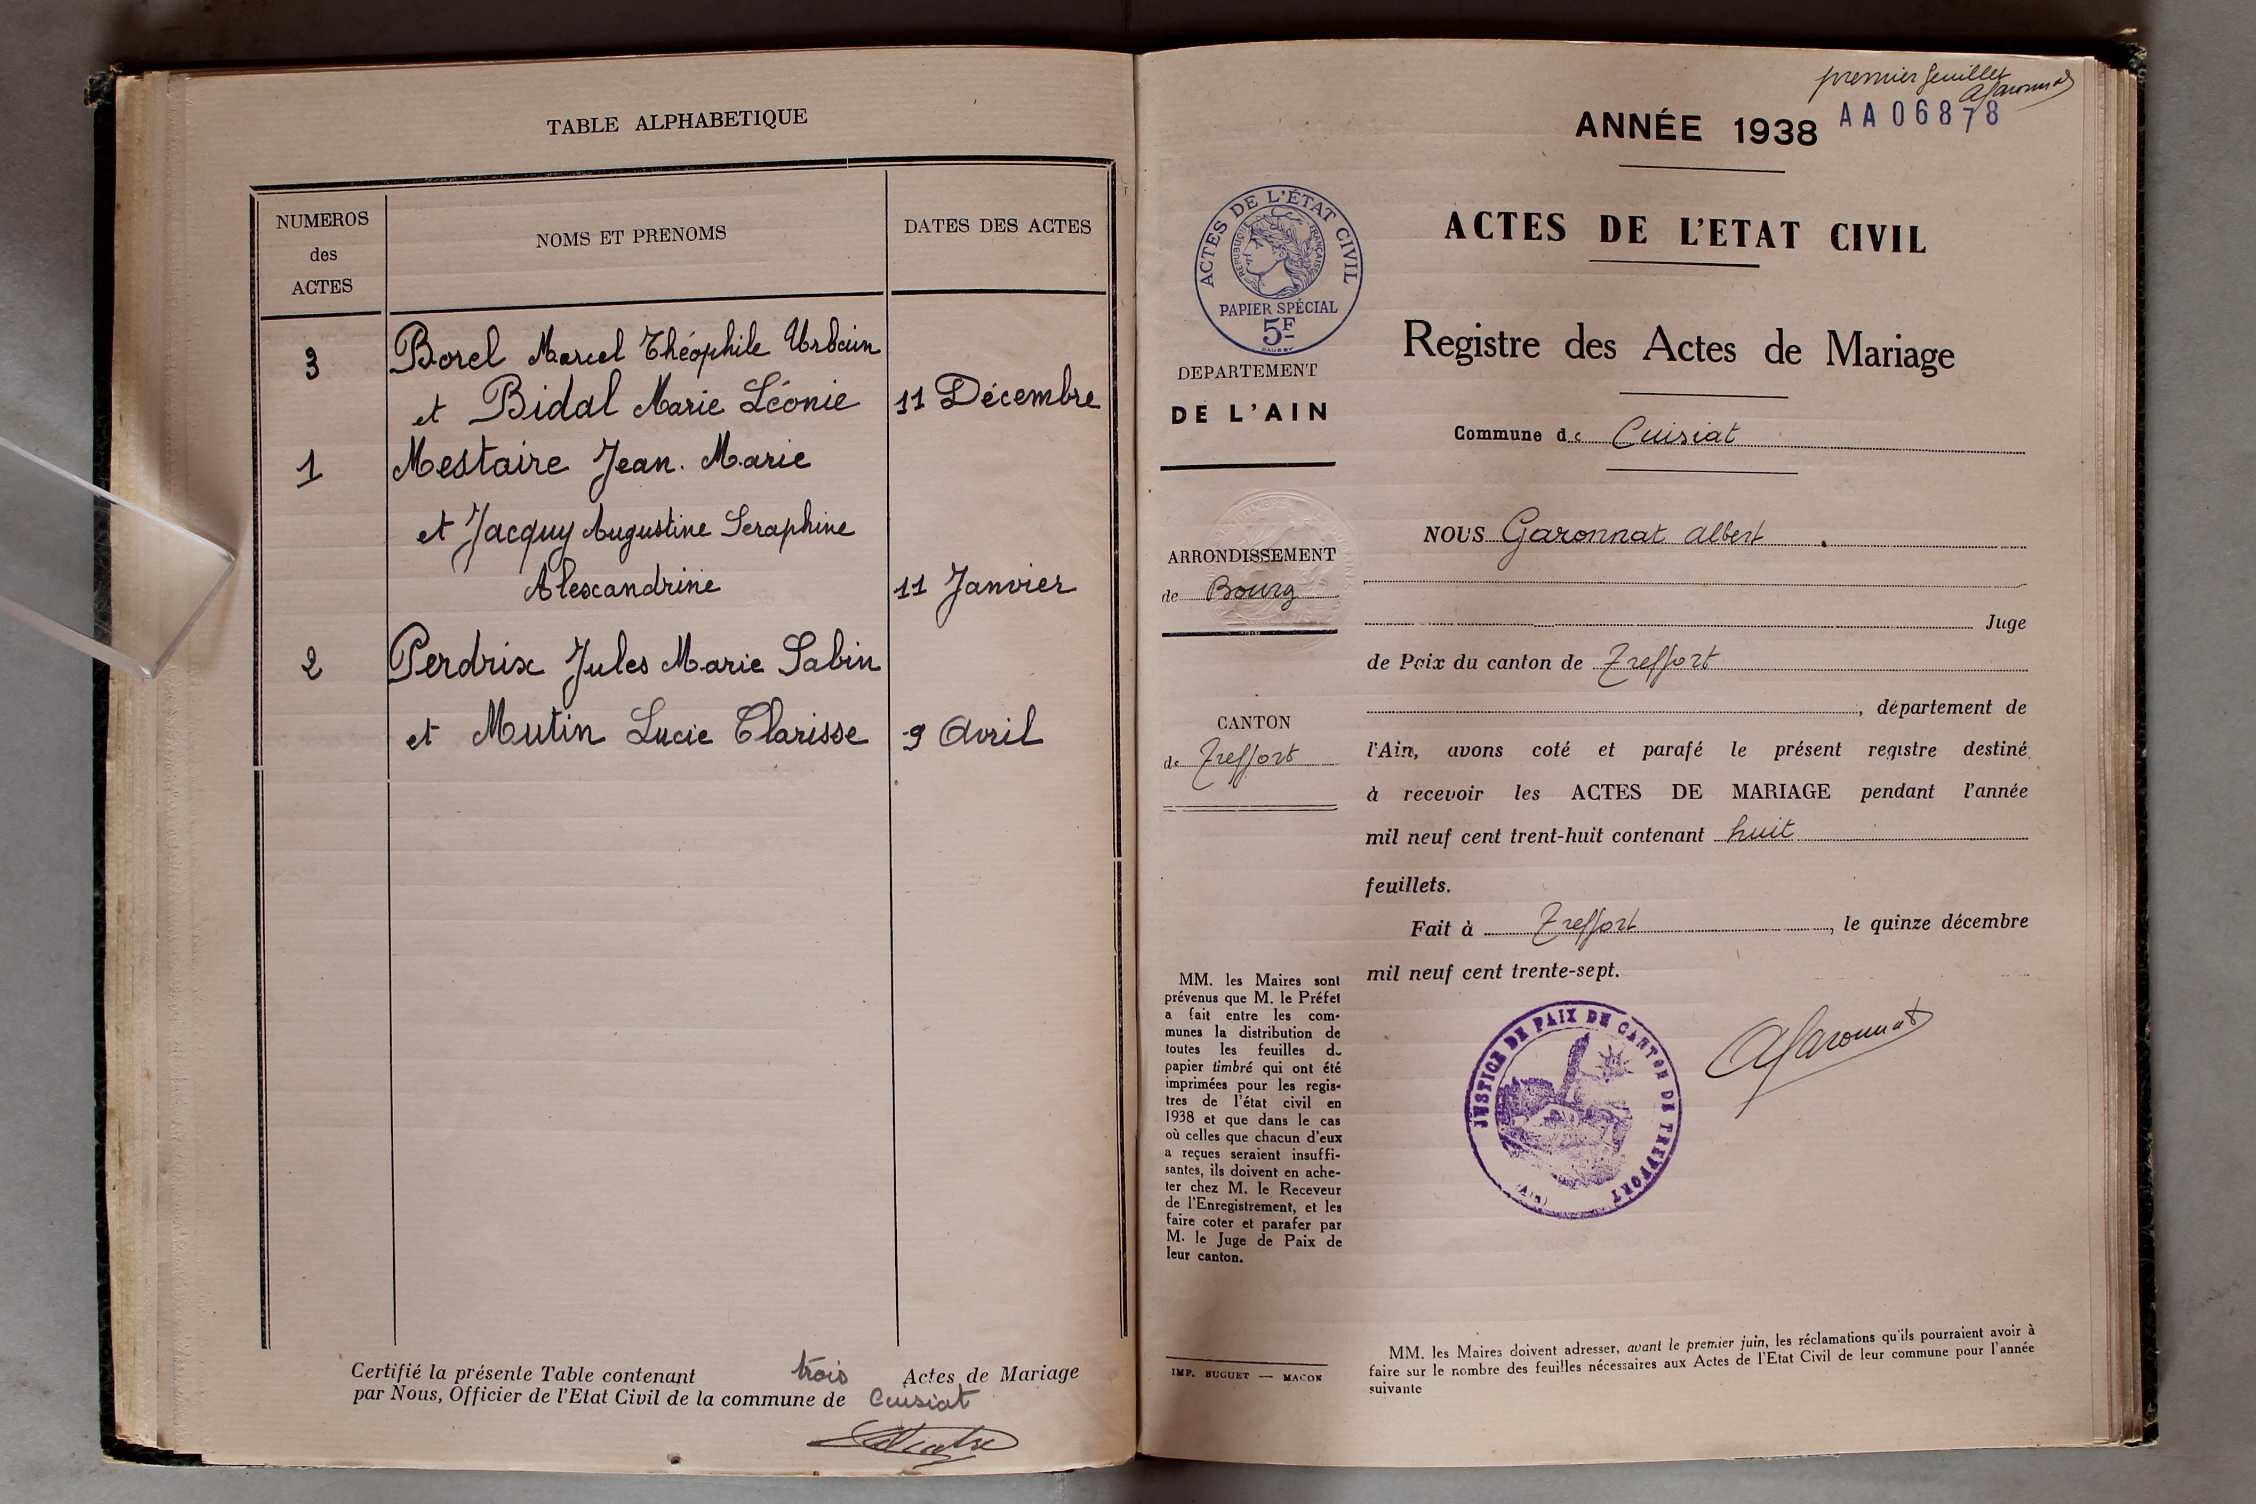 TABLE ALPHABETIQUE
NUMEROS
des
ACTES
NOMS ET PRENOMS
DATES DES ACTES
3 Borel Marcel Théophile Urbain
et Bidal Marie Léonie 11 Décembre
1 Mestaire Jean. Marie
et Jacquy Augustine Seraphine
Alexandrine 11 Janvier
2 Perdrix Jules Marie Sabin
et Mutin Lucie Clarisse 9 Avril
Certifié la présente Table contenant trois Actes de Mariage
par Nous, Officier de l'Etat Civil de la commune de Cuisiat
premier feuillet
AGaronnat
ANNÉE 1938 AA06878
ACTES DE L'ÉTAT CIVIL
RÉPUBLIQUE FRANÇAISE
PAPIER SPÉCIAL
5F
DEPARTEMENT
DE L'AIN
ARRONDISSEMENT
de Bourg
CANTON
de Treffort
MM. les Maires sont
prévenus que M. le Préfet
a fait entre les com-
munes la distribution de
toutes les feuilles du
papier timbré qui ont été
imprimées pour les regis-
tres de l'état civil en
1938 et que dans le cas
où celles que chacun d'eux
a reçues seraient insuffi-
santes, ils doivent en ache-
ter chez M. le Receveur
de l'Enregistrement, et les
faire coter et parafer par
M. le Juge de Paix de
leur canton.
IMP. BUGUET — MACON
ACTES DE L'ETAT CIVIL
Registre des Actes de Mariage
Commune de Cuisiat
NOUS Garonnat Albert
Juge
de Paix du canton de Treffort
, département de
l'Ain, avons coté et parafé le présent registre destiné
à recevoir les ACTES DE MARIAGE pendant l'année
mil neuf cent trent-huit contenant huit
feuillets.
Fait à Treffort, le quinze décembre
mil neuf cent trente-sept.
JUSTICE DE PAIX DE CANTON DE TREFFORT
(AIN)
AGaronnat
MM. les Maires doivent adresser, avant le premier juin, les réclamations qu'ils pourraient avoir à
faire sur le nombre des feuilles nécessaires aux Actes de l'Etat Civil de leur commune pour l'année
suivante